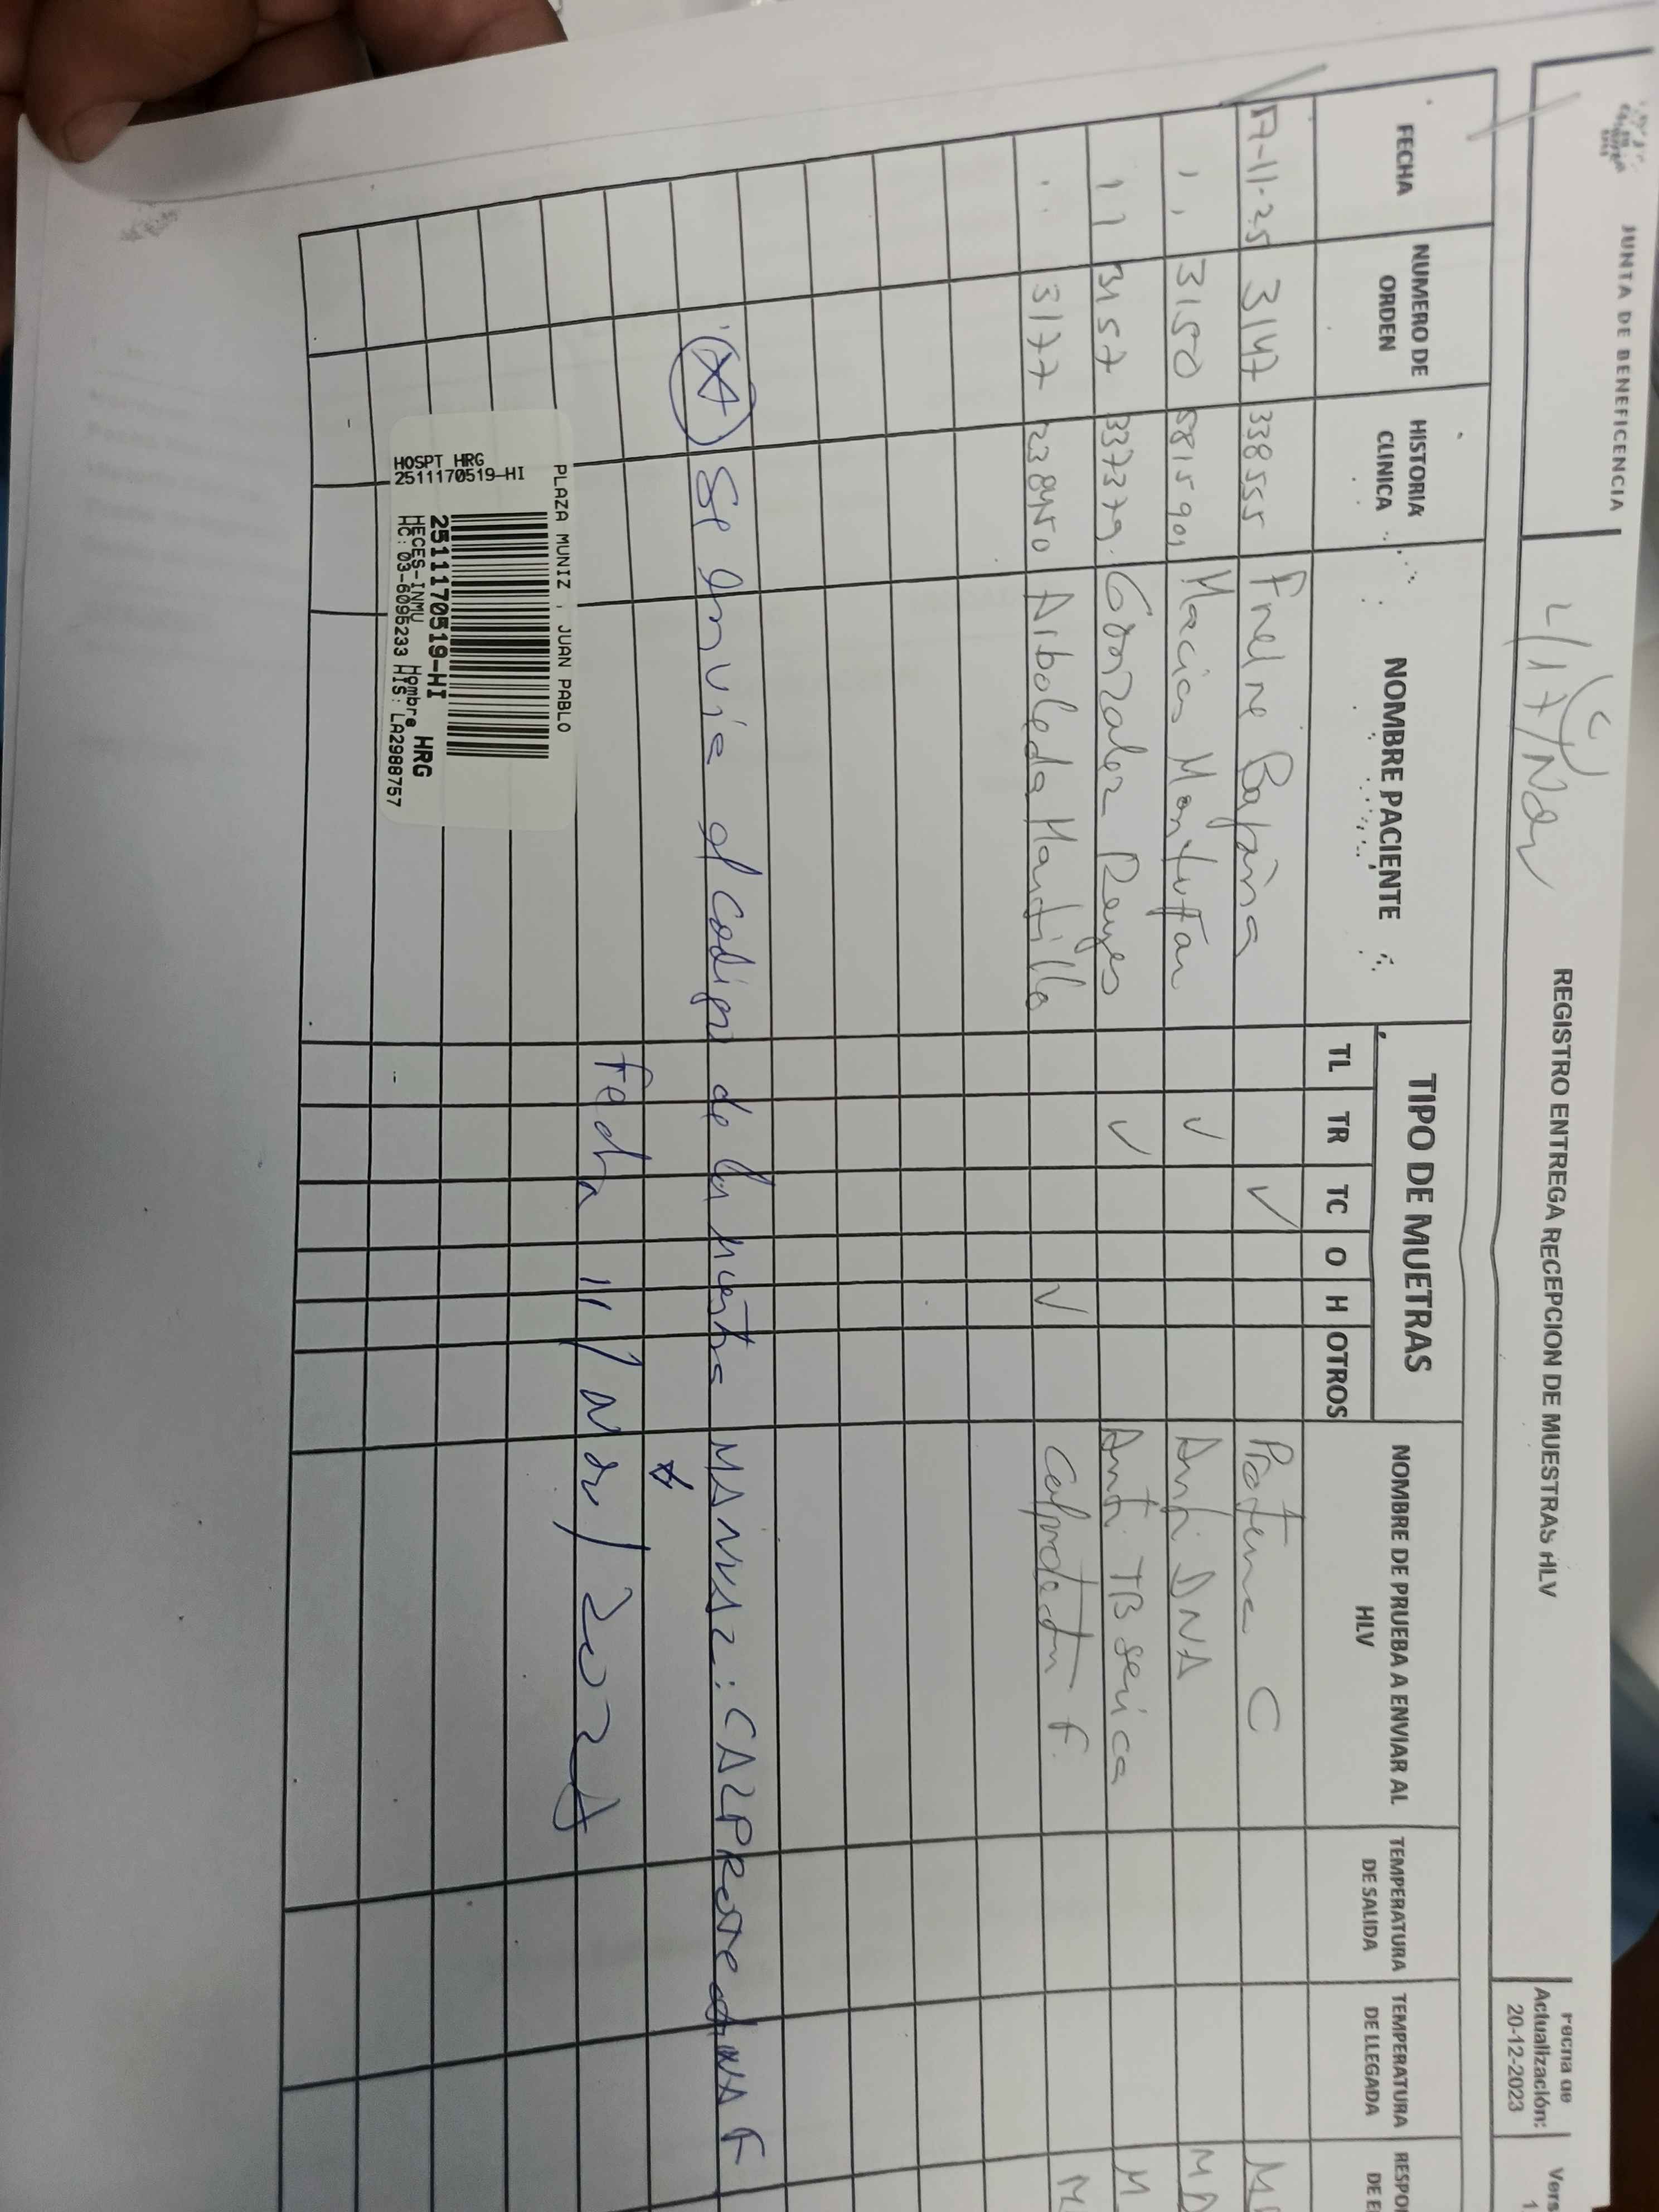 JUNTA DE BENEFICENCIA
REGISTRO ENTREGA RECEPCION DE MUESTRAS HLV
Fecha de
Actualización:
20-12-2023
Vers
1
L/17/Nov
FECHA
NUMERO DE
ORDEN
HISTORIA
CLINICA
NOMBRE PACIENTE
TIPO DE MUETRAS
TL TR TC O H OTROS
NOMBRE DE PRUEBA A ENVIAR AL
HLV
TEMPERATURA
DE SALIDA
TEMPERATURA
DE LLEGADA
RESPO
DE E
17-11-25 3147 338555 Bajaña ✓ Proteina C
,, 3150 5815901 Macias Montufar ✓ Anti DNA
,, 3157 337379 Gonzalez Reyes ✓ Anti TB serica
3177 Arboleda Mantilla ✓ Calprotectin F.
Se Envia el codigo de la muestra MANUAL: CALPROTECTINA F
Fecha 11/Nov/202
PLAZA MUNIZ , JUAN PABLO
HOSPT HRG
2511170519-HI
2511170519-HI HRG
HECES-INMU Hombre
HC: 03-6095233 HIS: LA2988757